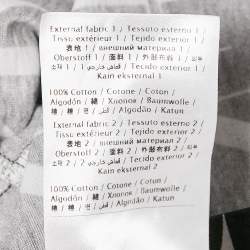 External fabric 1 / Tessuto esterno 1 /
Tissu extérieur 1 / Tejido exterior 1 /
表地 1 / внешний материал 1 /
Oberstoff 1 / 面料 / 外層布料 /
소재 1 / قماش خارجي 1 /
Kain eksternal 1
100% Cotton / Cotone / Coton /
Algodón / 綿 / Хлопок / Baumwolle /
棉 / 棉 / 면 / قطن / Algodão / Katun
External fabric 2 / Tessuto esterno 2 /
Tissu extérieur 2 / Tejido exterior 2 /
表地 2 / внешний материал 2 /
Oberstoff 2 / 面料 2 / 外層布料 2 /
소재 2 / قماش خارجي 2 /
Kain eksternal 2
100% Cotton / Cotone / Coton /
Algodón / 綿 / Хлопок / Baumwolle /
棉 / 棉 / 면 / قطن / Algodão / Katun